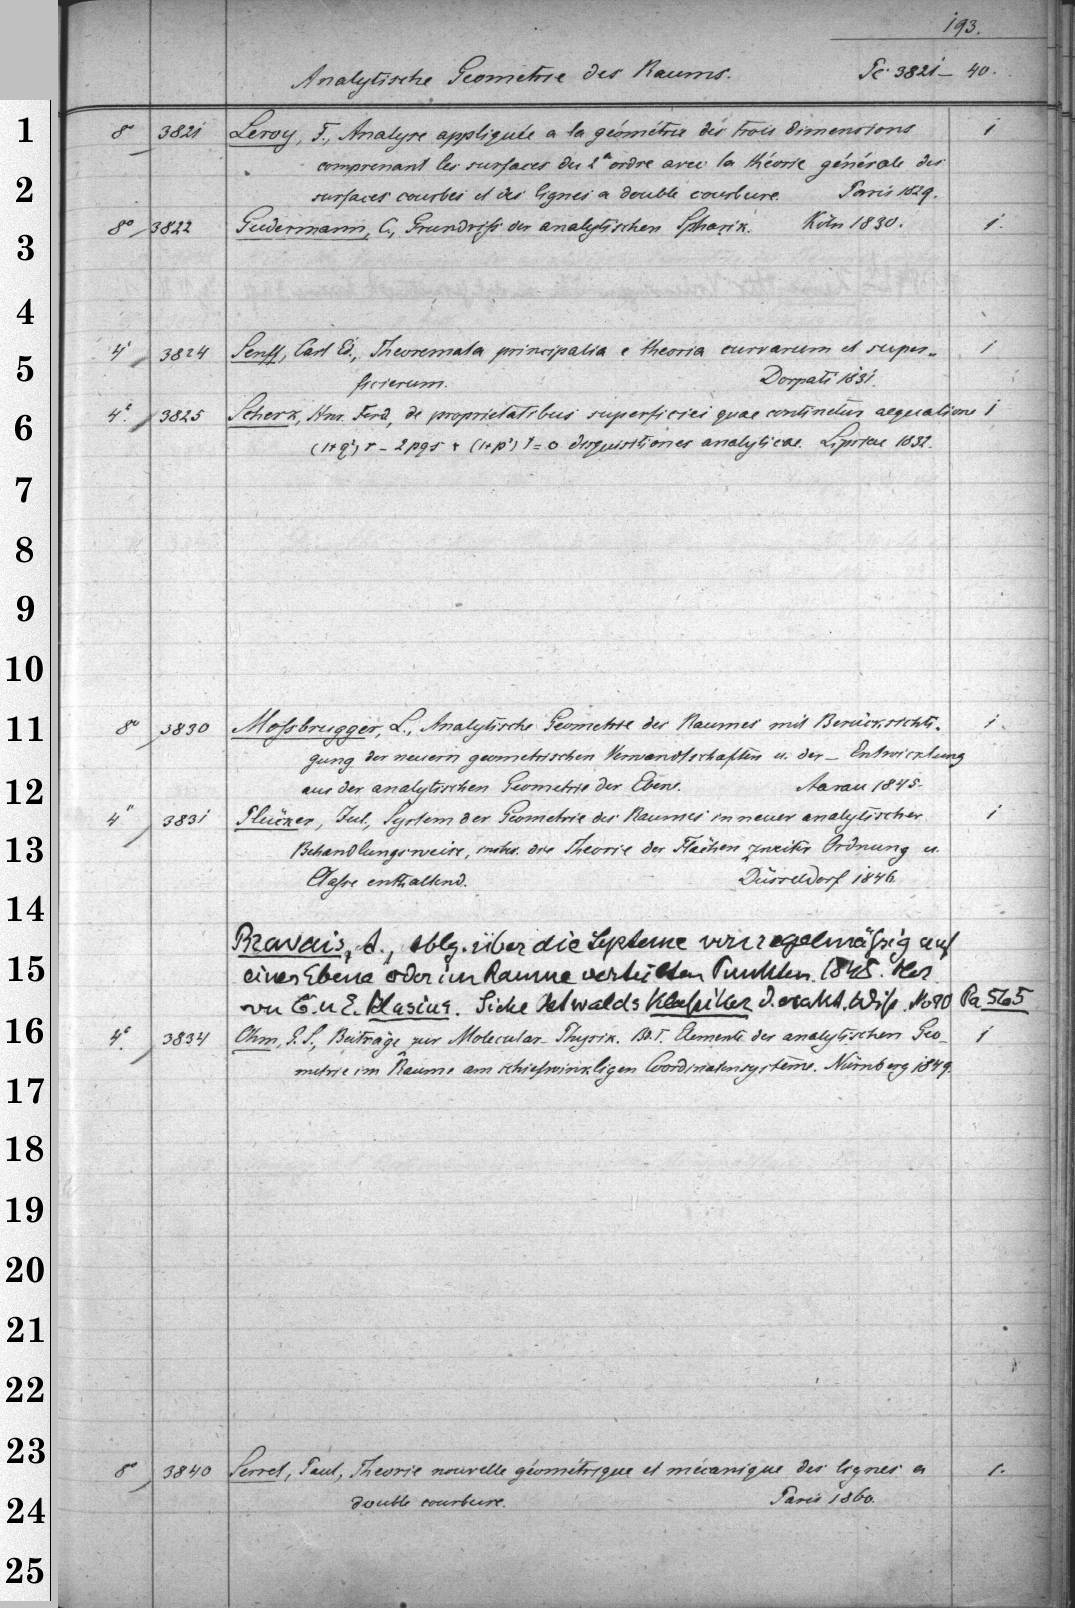 193.
Analytische Geometrie des Raums. Pc 3821 - 40.
1
8° 3821 Leroy, F., Analyse appliquée a la géométrie des trois dimensions 1
comprenant les surfaces du 2d ordre avec la théorie générale des
2
surfaces courbes et des lignes a double courbure. Paris 1829.
8° 3822 Gudermann, C., Grundriß der analytischen Sphärik. Köln 1830. 1.
3
4
4° 3824 Senff, Carl Ed., Theoremata principalia e theoria curvarum et super- 1
5
ficierum. Dorpati 1831.
4° 3825 Scherk, Hnr. Ferd, de proprietatibus superficiei quae continetur aequatione 1
6
(1+q²) r - 2pqs + (1+p²) t = 0 disquisitiones analyticae. Lipsiae 1832.
7
8
9
10
8° 3830 Moßbrugger, L., Analytische Geometrie des Raumes mit Berücksichti- 1
11
gung der neuern geometrischen Verwandtschaften u. der - Entwicklung
12
aus der analytischen Geometrie der Ebene. Aarau 1845.
4° 3831 Plücker, Jul., System der Geometrie des Raumes in neuer analytischer 1
13
Behandlungsweise, insbes. die Theorie der Flächen zweiter Ordnung u.
Classe enthaltend. Düsseldorf 1846.
14
Bravais, A., Abhg. über die Systeme von regelmäßig auf
15
einer Ebene oder im Raume verteilten Punkten. 1848. Hrs
von C. u E. Blasius. Siehe Ostwalds Klassiker d. exakt. Wiss. No 90 Pa 565
16
4° 3834 Ohm, G. S., Beiträge zur Molecular-Physik. Bd. I. Elemente der analytischen Geo- 1
metrie im Raume am schiefwinkligen Coordinatensysteme. Nürnberg 1849.
17
18
19
20
21
22
23
8° 3840 Serret, Paul, Theorie nouvelle géométrique et mécanique des lignes a 1.
24
double courbure. Paris 1860.
25